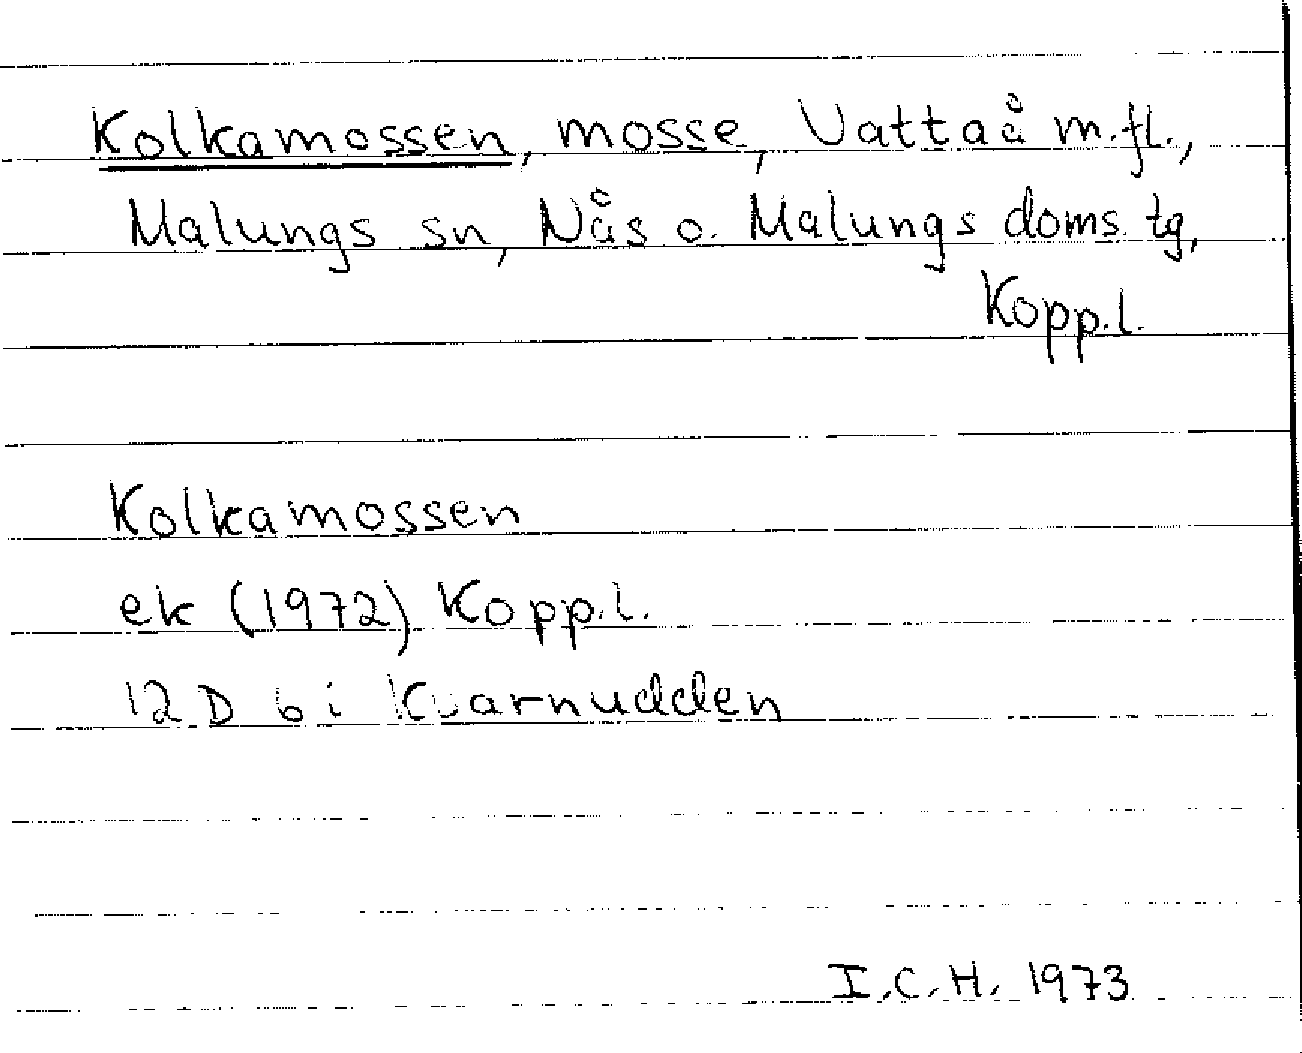 Kolkamossen, mosse, Vattaå m.fl.,
Malungs sn, Nås o. Malungs doms. tg,
Kopp.l.
Kolkamossen
ek (1972) Kopp.l.
12 D 6 i Kvarnudden
I.C.H. 1973